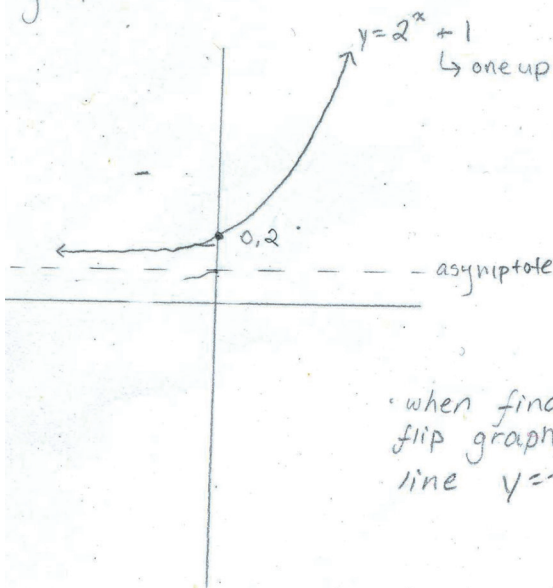 y = 2ˣ + 1
↳ one up
0,2
asymptote
· when
flip graph
line y =